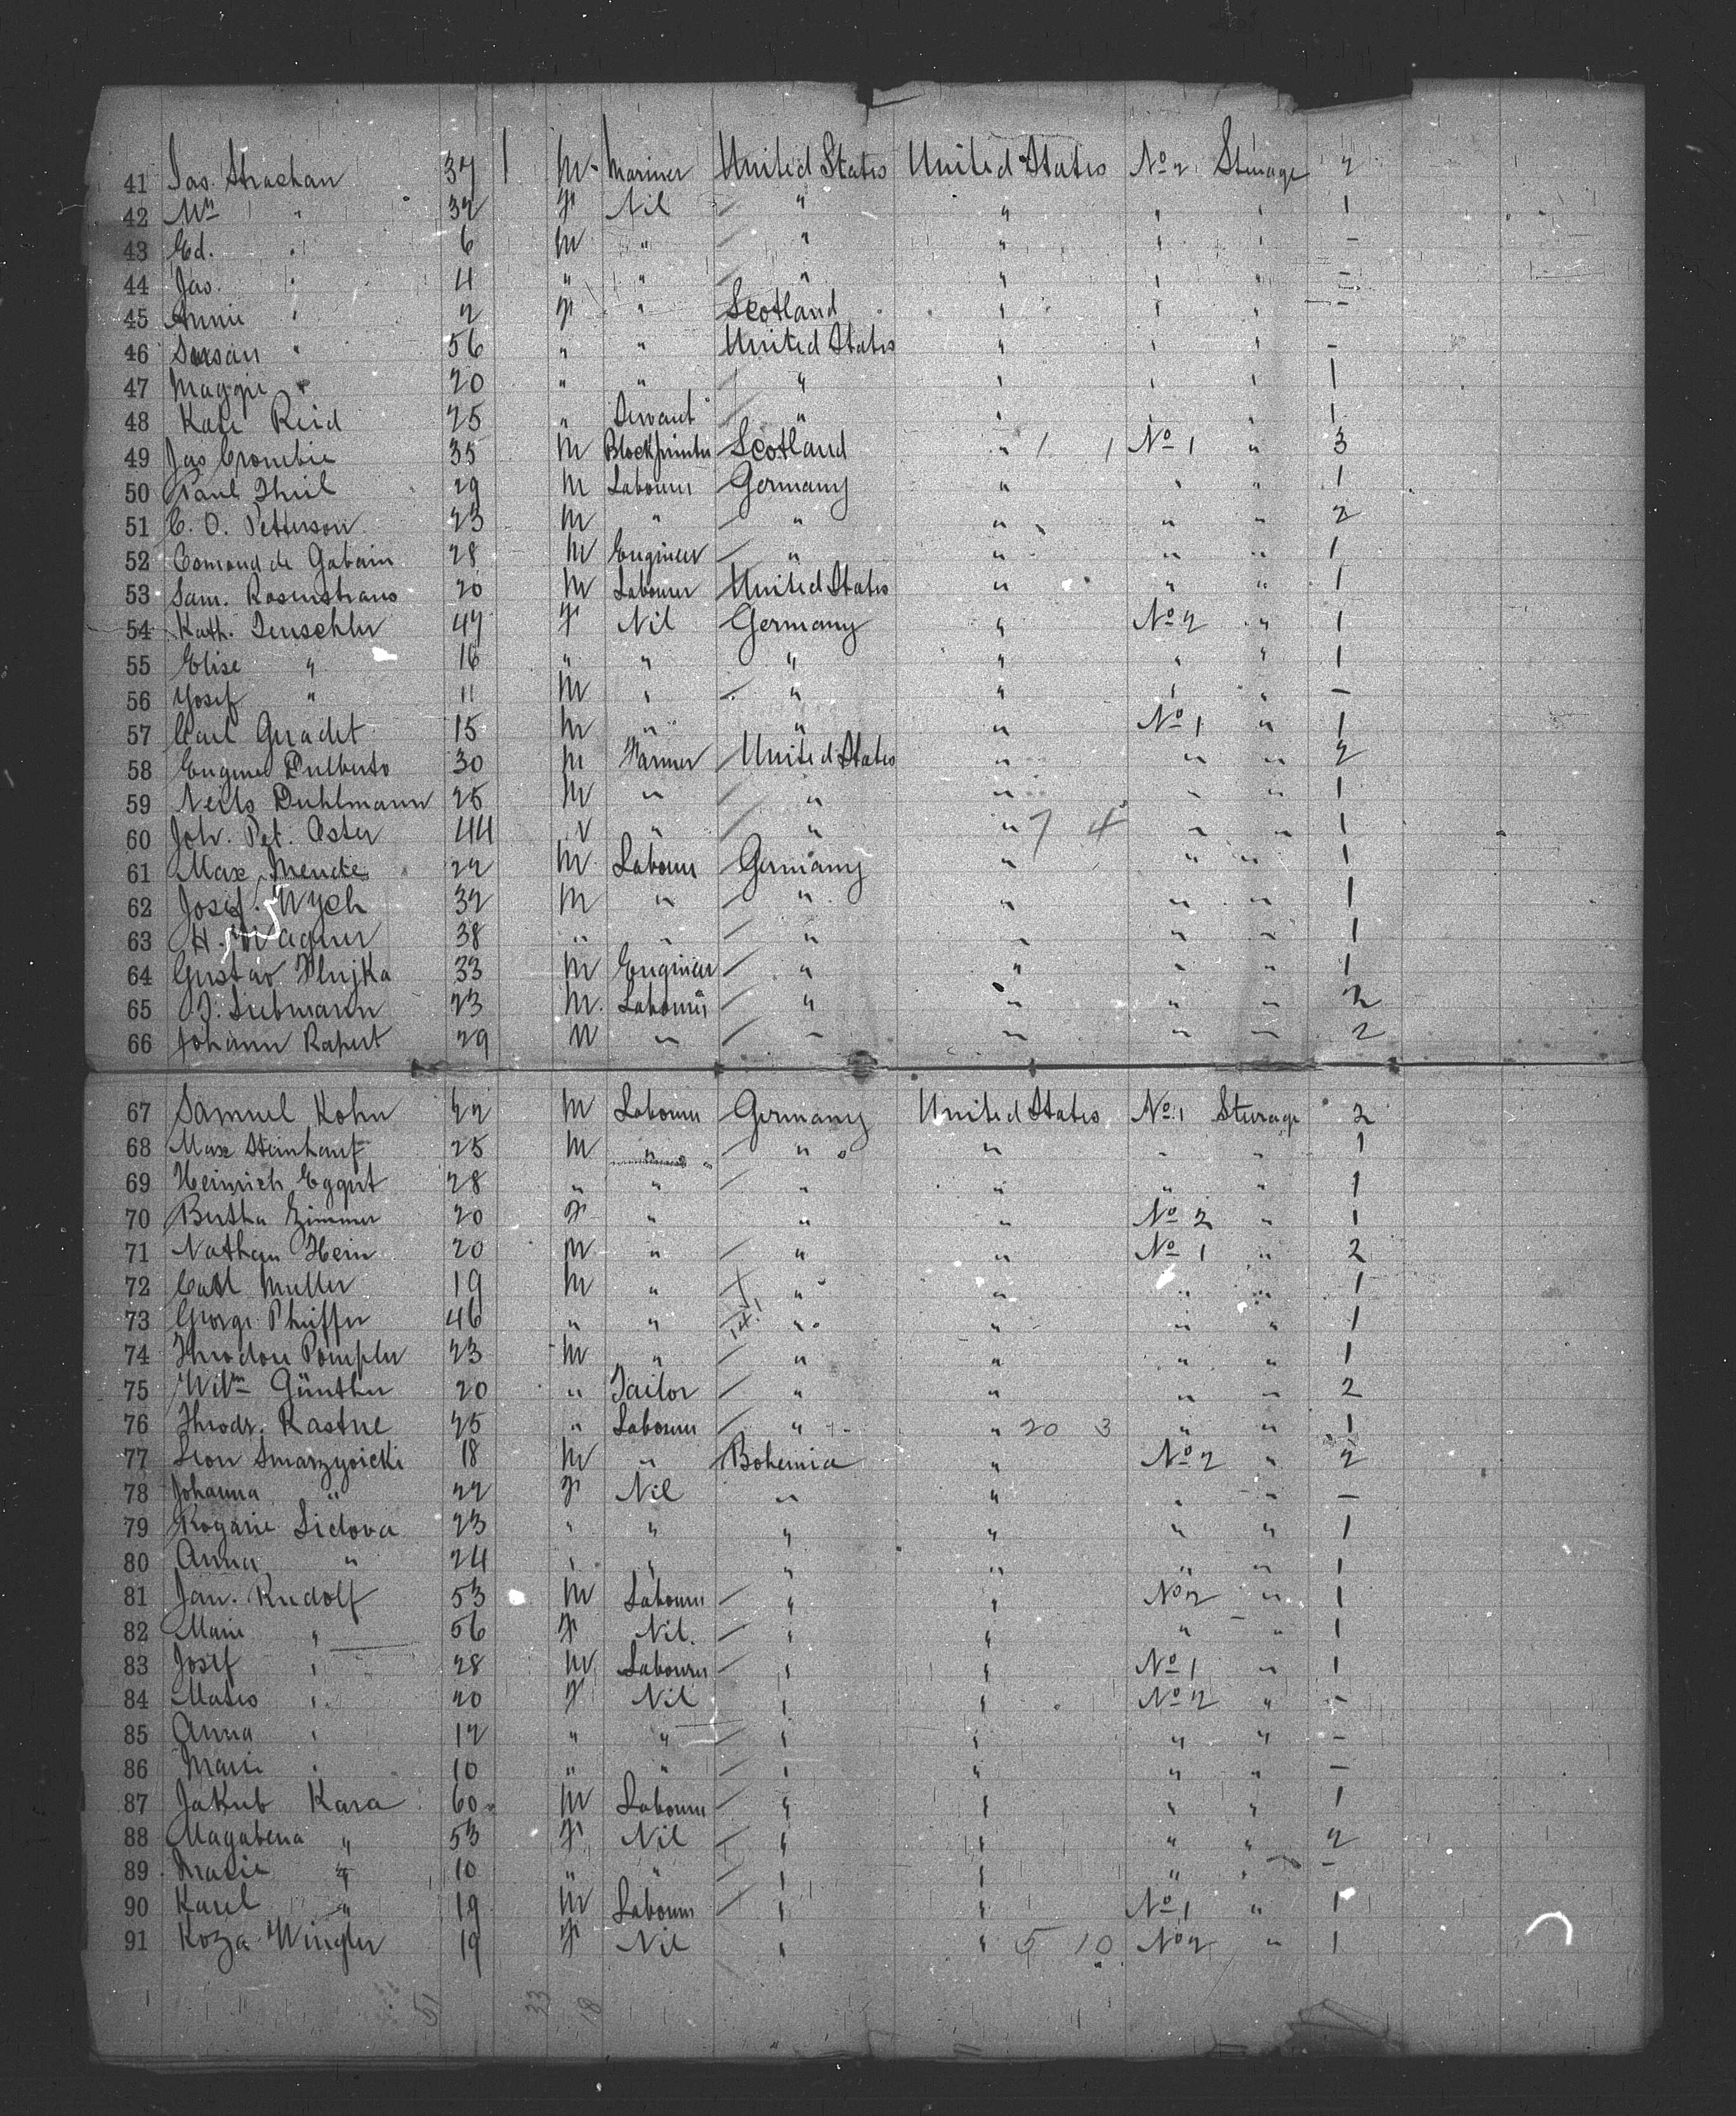 41 Jas. Strachan 37 M. Mariner United States United States No 2 Sterage 2
42 Mrs " 32 F Nil " " " " 1
43 Ed. " 6 M " " " " " -
44 Jas. " 4 " " " " " " -
45 Annie " 2 F " Scotland " " " -
46 Susan " 56 " " United States " " " -
47 Maggie " 20 " " " " " " 1
48 Kate Reid 25 " Servant " " " " 1
49 Jas Crombie 35 M Blockprinter Scotland " 1 1 No 1 " 3
50 Paul Thiel 29 M Labourer Germany " " " 1
51 C. O. Petterson 23 M " " " " " 2
52 Edmond de Gabain 28 M Engineer " " " " 1
53 Sam. Rosenstraus 20 M Labourer United States " " " 1
54 Kath. Deuschler 47 F Nil Germany " No 2 " 1
55 Elise " 16 " " " " " " 1
56 Yosef " 11 M " " " " " -
57 Carl 15 M " " " No 1 " 1
58 Eugene Dulberts 30 M Farmer United States " " " 2
59 Neils Duhlmann 25 M " " " " " 1
60 Joh. Pet. Aster 44 " " " 7 4 " " 1
61 Max Mende 22 M Labourer Germany " " " 1
62 Josef Wych 32 M " " " " " 1
63 H. Wagner 38 " " " " " " 1
64 Gustav 33 M Engineer " " " " 1
65 Liebmann 23 M. Labourer " " " " 2
66 Johann Rapert 29 M " " " " " 2
67 Samuel Kohn 22 M Labourer Germany United States No 1 Sterage 2
68 Max Steinhauf 25 M " " " " " 1
69 Heinrich Eggert 28 " " " " " " 1
70 Bertha Zimmer 20 F " " " No 2 " 1
71 Nathan Hein 20 M " " " No 1 " 2
72 Carl Muller 19 M " " " " " 1
73 George Pheiffer 46 " " " " " " 1
74 Theodore Pompler 23 M " " " " " 1
75 Wilm Günther 20 " Tailor " " " " 2
76 Theodr. Kastne 25 " Labourer " " 20 3 " " 1
77 Leon Smarzyoicki 18 M " Bohemia " No 2 " 2
78 Johanna " 22 F Nil " " " " -
79 Lidova 23 " " " " " " 1
80 Anna " 24 " " " " " " 1
81 Jan. Rudolf 53 M Labourer " " No 2 " 1
82 Marie " 56 F Nil. " " " " 1
83 Josef " 28 M Labourer " " No 1 " 1
84 " 20 F Nil " " No 2 " -
85 Anna " 12 " " " " " " -
86 Marie " 10 " " " " " " -
87 Jakub Kara 60 M Labourer " " " " 1
88 Magabena " 53 F Nil " " " " 2
89 Marie " 10 " " " " " " -
90 Karel " 19 M Labourer " " No 1 " 1
91 Koza Wingler 19 F Nil " " 5 10 No 2 " 1
51 33 18